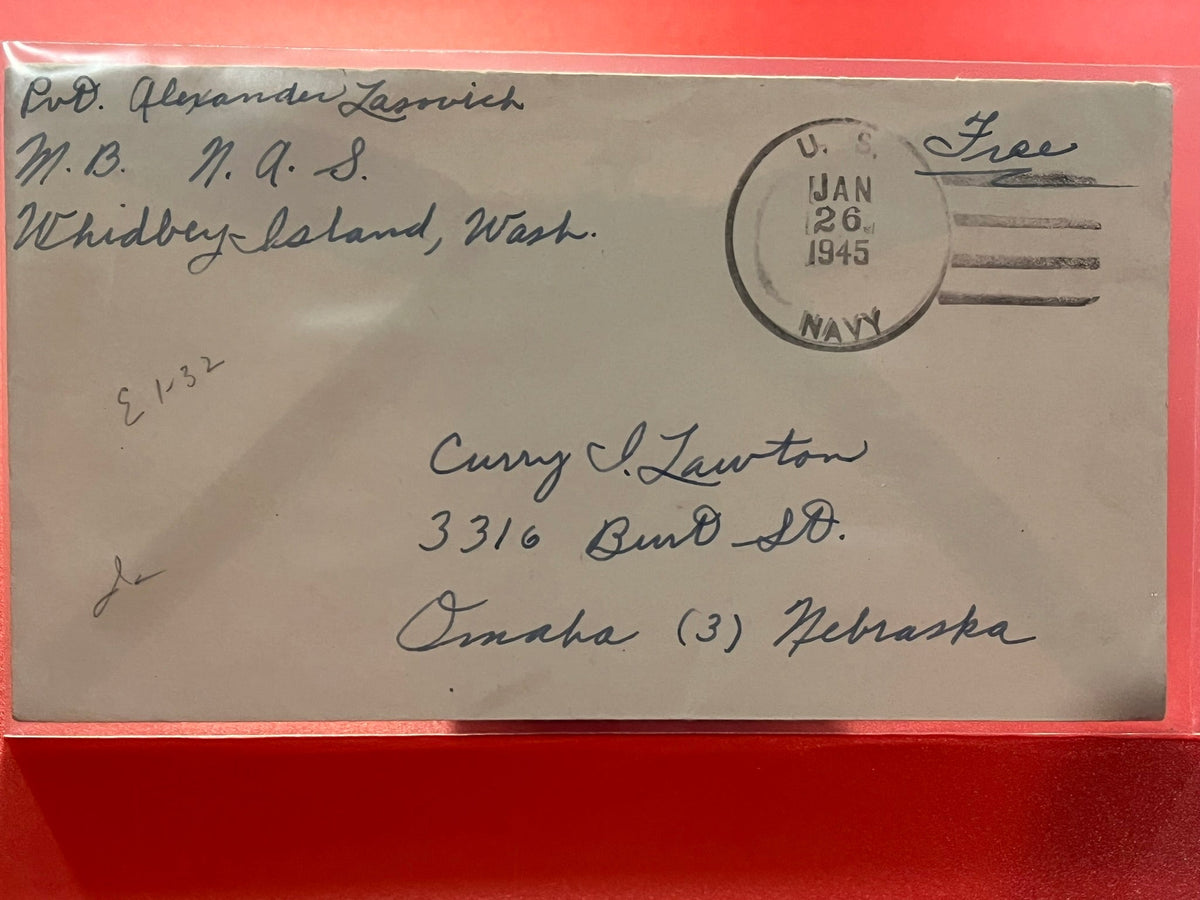 Pvt. Alexander Lasovich
M.B. N.A.S.
Whidbey Island, Wash.
Free
U. S.
JAN
26
1945
NAVY
E 1-32
Curry I. Lawton
3316 Burt St.
Omaha (3) Nebraska